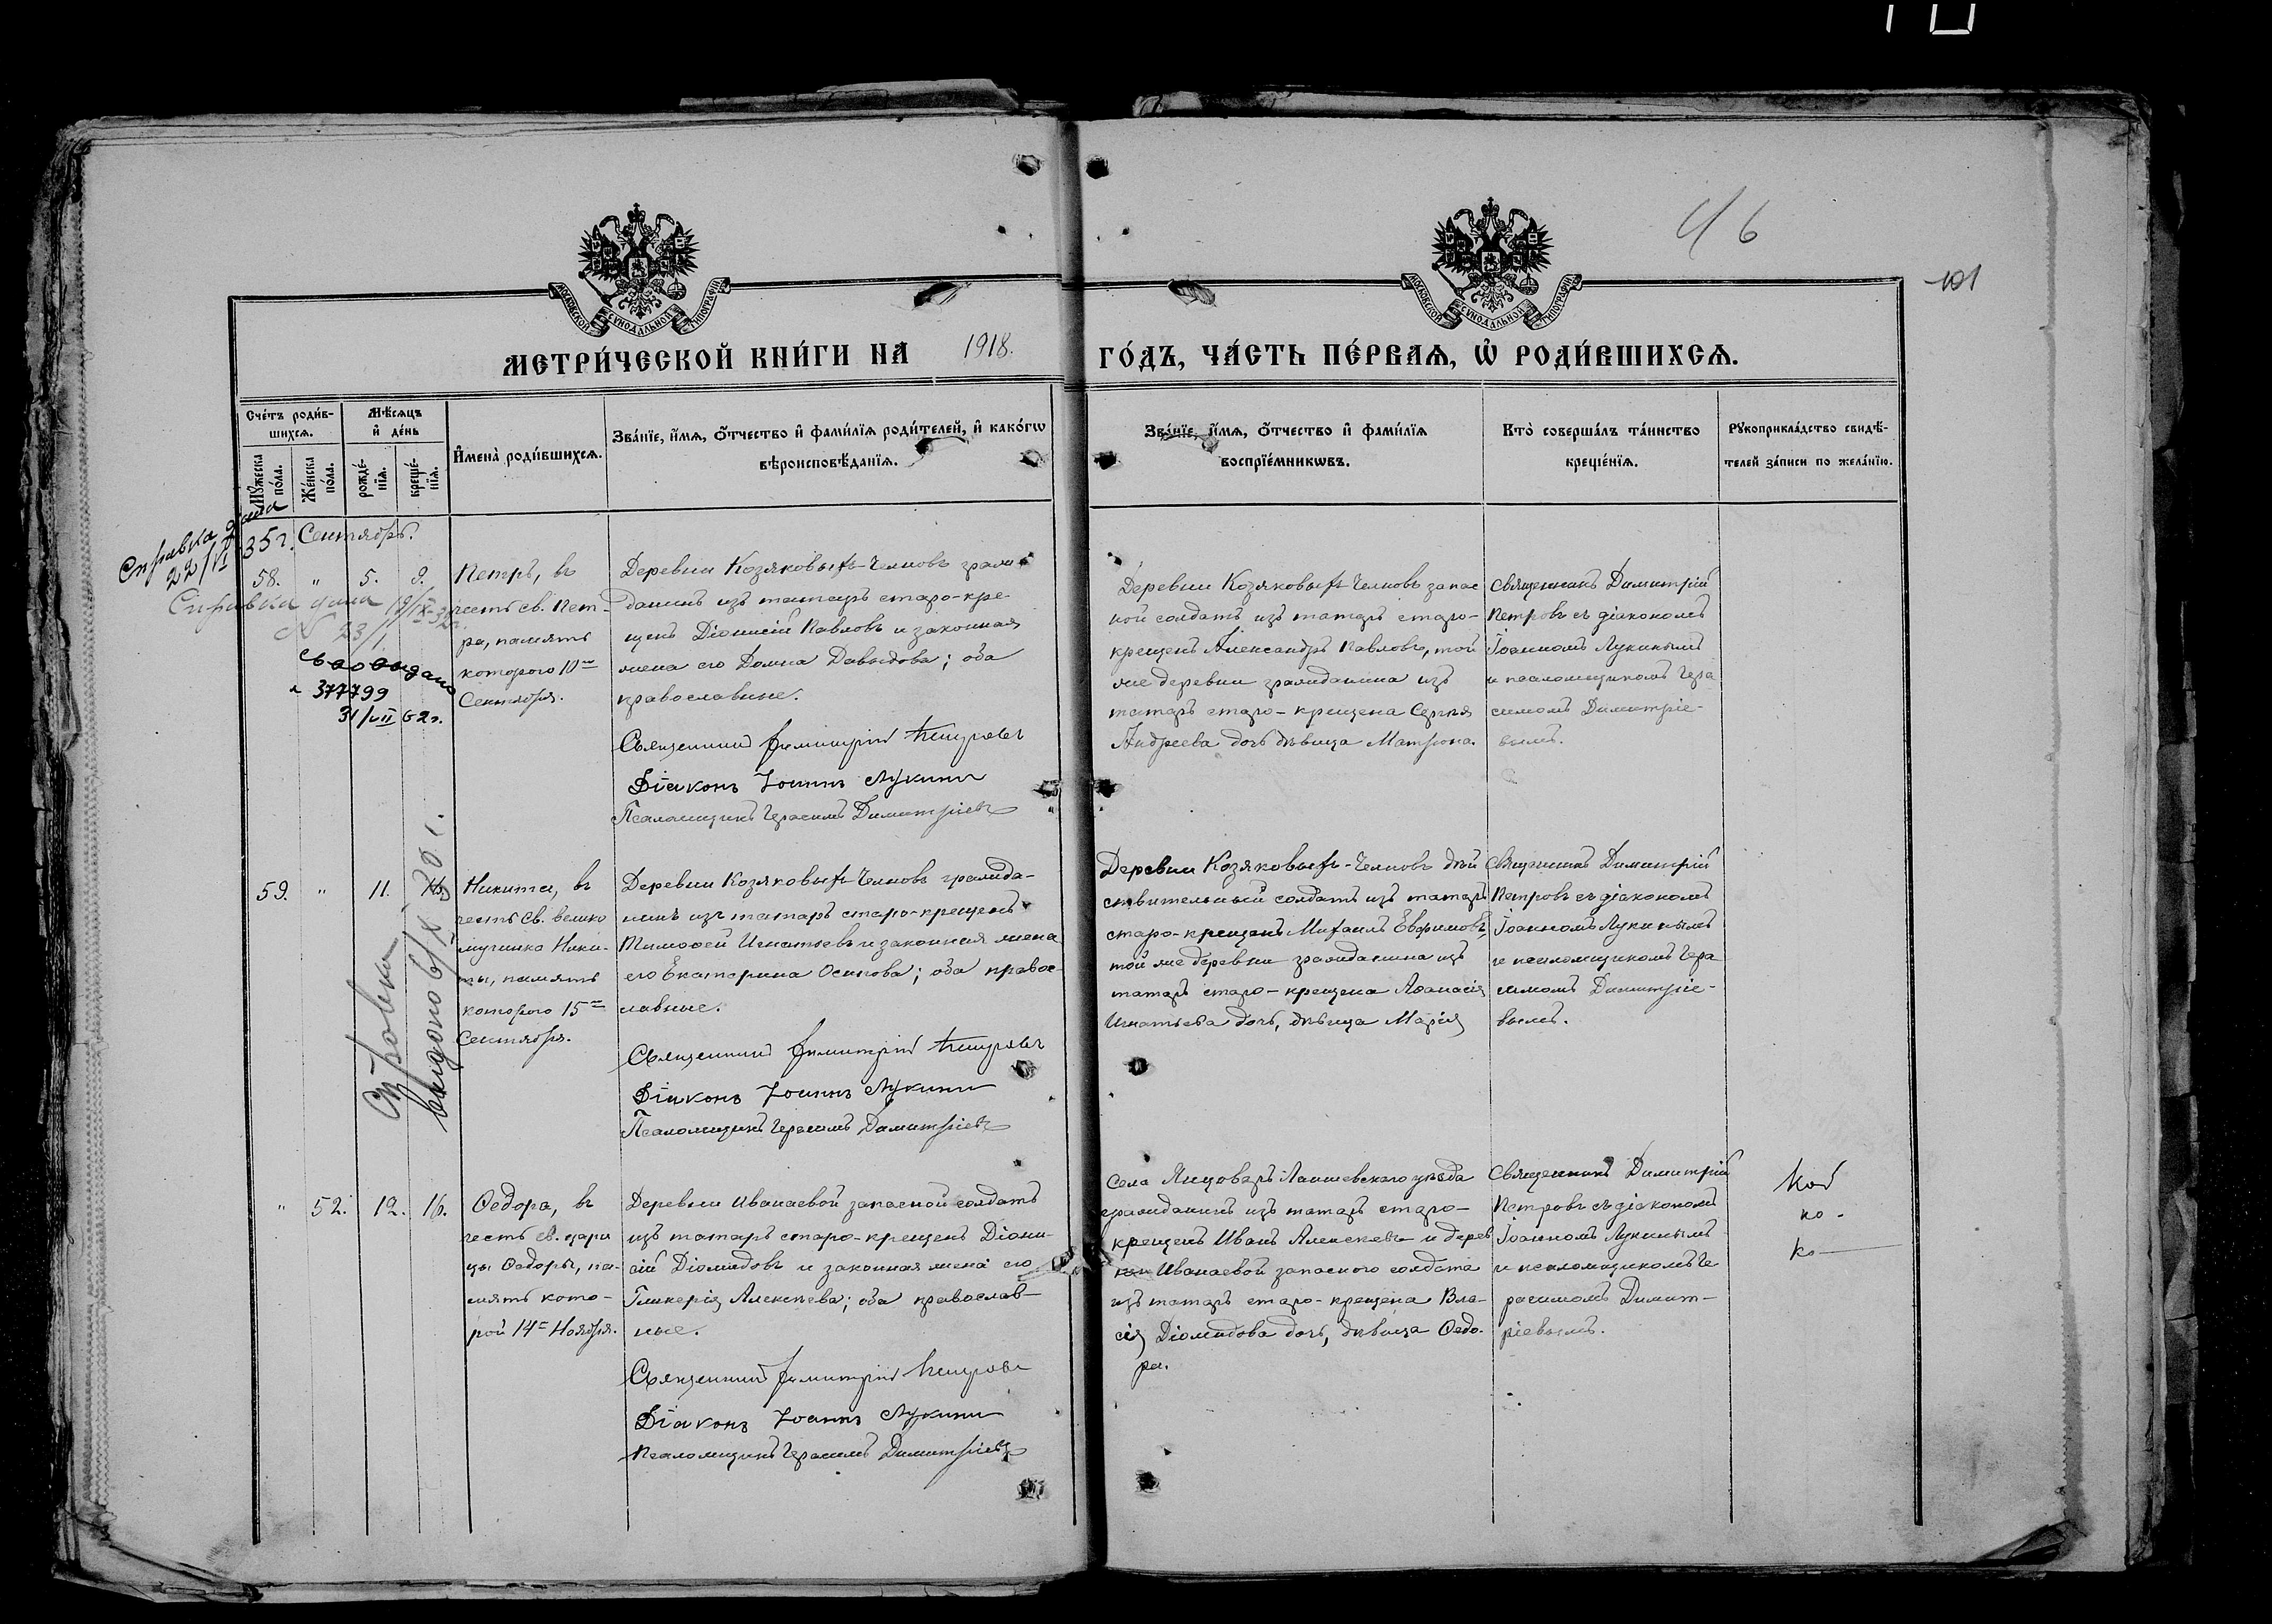 46
101
МОСКОВСКОЙ СѴНОДАЛЬНОЙ ТИПОГРАФІИ
МОСКОВСКОЙ СѴНОДАЛЬНОЙ ТИПОГРАФІИ
МЕТРИ́ЧЕСКОЙ КНИ́ГИ НА 1918. ГО́ДЪ, ЧА́СТЬ ПЕ́РВАѦ, Ѡ҆ РОДИ́ВШИХСѦ.
Сче́тъ роди́в-
шихсѧ.
Мѣ́сѧцъ
и҆ де́нь
Мꙋ́жеска
по́ла.
Же́нска
по́ла.
рожде́-
нїѧ.
креще́-
нїѧ.
И҆мена̀ роди́вшихсѧ.
Зва́нїе, и҆́мѧ, ѻ҆́тчество и҆ фами́лїѧ роди́телей, и҆ како́гѡ
вѣроисповѣ́данїѧ.
Зва́нїе, и҆́мѧ, ѻ҆́тчество и҆ фами́лїѧ
воспрїе́мникѡвъ.
Кто̀ соверша́лъ та́инство
креще́нїѧ.
Рꙋкоприкла́дство свидѣ́-
телей за́писи по жела́нїю.
Справка дана
22/VI 35 г.
Сентябрь.
58. " 5. 9.
Справка дана 19/IX-32г.
N 23/1
св-во выдано
377799
31/VII 62 г.
Петръ, въ
честь св. Пет-
ра, память
котораго 10го
Сентября.
Деревни Козяковыхъ Челновъ граж-
данинъ изъ татаръ старо-кре-
щенъ Діонисій Павловъ и законная
жена его Домна Давыдова; оба
православные.
Священникъ Димитрій Петровъ
Діаконъ Іоаннъ Лукинъ
Псаломщикъ Герасимъ Димитріевъ
Деревни Козяковыхъ Челновъ запас
ной солдатъ изъ татаръ старо-
крещенъ Александръ Павловъ, той
же деревни гражданина изъ
татаръ старо-крещена Сергея
Андреева дочь дѣвица Матрона.
Священникъ Димитрій
Петровъ съ діакономъ
Іоанномъ Лукинымъ
и псаломщикомъ Гера
симомъ Димитріе-
вымъ.
59. " 11.
Справка
выдана 6/X 30 г.
Никита, въ
честь св. велико
мученика Ники-
ты, память
котораго 15го
Сентября.
Деревни Козяковыхъ Челновъ гражда-
нинъ изъ татаръ старо-крещенъ
Тимофей Игнатьевъ и законная жена
его Екатерина Осипова; оба правос-
лавные.
Священникъ Димитрій Петровъ
Діаконъ Іоаннъ Лукинъ
Псаломщикъ Герасимъ Димитріевъ
Деревни Козяковыхъ-Челновъ дѣй
ствительный солдатъ изъ татаръ
старо-крещенъ Михаилъ Евфимовъ,
той же деревни гражданина изъ
татаръ старо-крещена Аѳанасія
Игнатьева дочь, дѣвица Марія
Священникъ Димитрій
Петровъ съ діакономъ
Іоанномъ Лукинымъ
и псаломщикомъ Гера
симомъ Димитріе-
вымъ.
" 52. 12. 16.
Ѳедора, въ
честь св. цари
цы Ѳедоры, па-
мять кото-
рой 14го Ноября.
Деревни Иванаевой запасной солдатъ
изъ татаръ старо-крещенъ Діони-
сій Діомидовъ и законная жена его
Гликерія Алексѣева; оба православ-
ные.
Священникъ Димитрій Петровъ
Діаконъ Іоаннъ Лукинъ
Псаломщикъ Герасимъ Димитріевъ
Села Янцоваръ Лаишевскаго уѣзда
гражданинъ изъ татаръ старо-
крещенъ Иванъ Алексѣевъ и дерев
Иванаевой запаснаго солдата
изъ татаръ старо-крещена Вла-
сія Діомидова дочь, дѣвица Ѳедо-
ра.
Священникъ Димитрій
Петровъ съ діакономъ
Іоанномъ Лукинымъ
и псаломщикомъ Ге
расимомъ Димит-
ріевымъ.